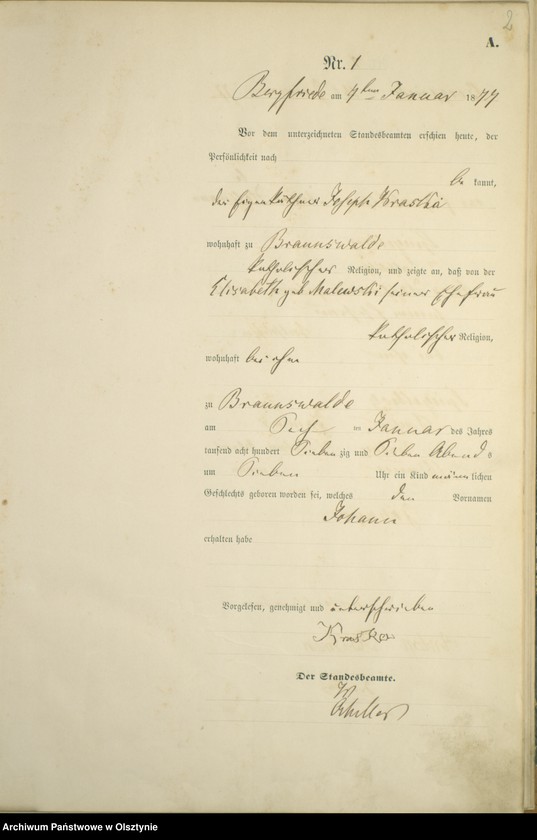 2
A.
Nr. 1
Bergfriede am 4ten Januar 1877
Vor dem unterzeichneten Standesbeamten erschien heute, der
Persönlichkeit nach
be kannt,
der Eigenkäthner Joseph
wohnhaft zu Braunswalde
katholischer Religion, und zeigte an, daß von der
Elisabeth geb Malewski seiner Ehefrau
katholischer Religion,
wohnhaft bei ihm
zu Braunswalde
am ten Januar des Jahres
tausend acht hundert Sieben zig und Sieben Abend s
um Sieben Uhr ein Kind männ lichen
Geschlechts geboren worden sei, welches den Vornamen
Johann
erhalten habe
Vorgelesen, genehmigt und unterschrieben
Der Standesbeamte.
Archiwum Państwowe w Olsztynie